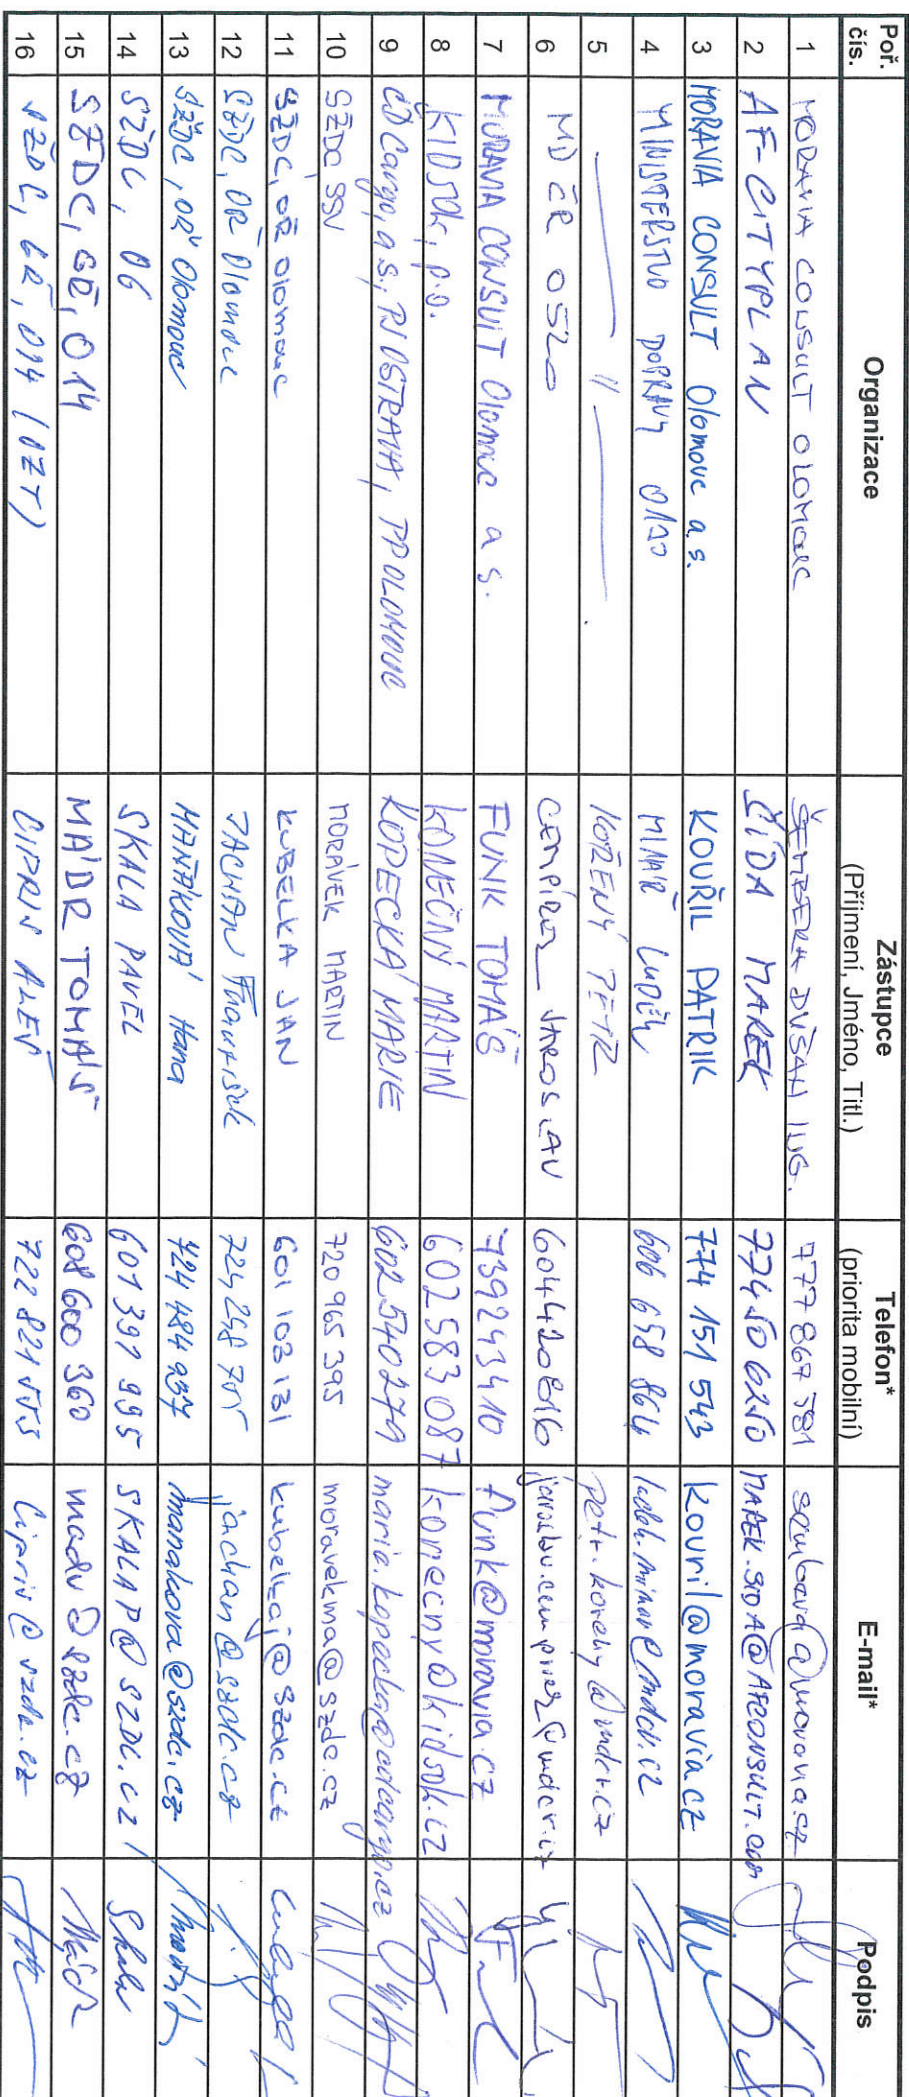 Poř. čís. Organizace Zástupce (Příjmení, Jméno, Titl.) Telefon* (priorita mobilní) E-mail* Podpis
1 MORAVIA CONSULT OLOMOUC DUŠAN ING. 777 867 581
2 AF-CITYPLAN ČÍDA MAREK 774 50 62 50
3 MORAVIA CONSULT Olomouc a.s. KOUŘIL PATRIK 774 151 543 kouril@moravia.cz
4 MINISTERSTVO DOPRAVY MINÁŘ LUDĚK 606 658 864 ludek.minar@mdcr.cz
5 —— // —— KOŘENÝ PETR petr.koreny@mdcr.cz
6 MD ČR 0520 CEMPÍREK JAROSLAV 604420816
7 MORAVIA CONSULT Olomouc a.s. FUNK TOMÁŠ 739243410 funk@moravia.cz
8 KIDSOK, p.o. KONEČNÝ MARTIN 602583087 konecny@kidsok.cz
9 ČD Cargo, a.s., PJ OSTRAVA, PP OLOMOUC KOPECKÁ MARIE 602540279 marie.kopecka@cdcargo.cz
10 SŽDC SSV MORÁVEK MARTIN 720 965 395 moravekma@szdc.cz
11 SŽDC, OŘ Olomouc KUBELKA JAN 601 103 131 kubelkaj@szdc.cz
12 SŽDC, OŘ Olomouc JACHAN František 724 248 705 jachan@szdc.cz
13 SŽDC, OŘ Olomouc Hana 724 484 937
14 SŽDC, O6 SKALA PAVEL 601 391 995 SKALAP@SZDC.CZ
15 SŽDC, GŘ, O14 MÁDR TOMÁŠ 608 600 360 madr@szdc.cz
16 SŽDC, GŘ, O14 (OZT) CIPRIS ALEŠ 722 821 555 Cipris@szdc.cz